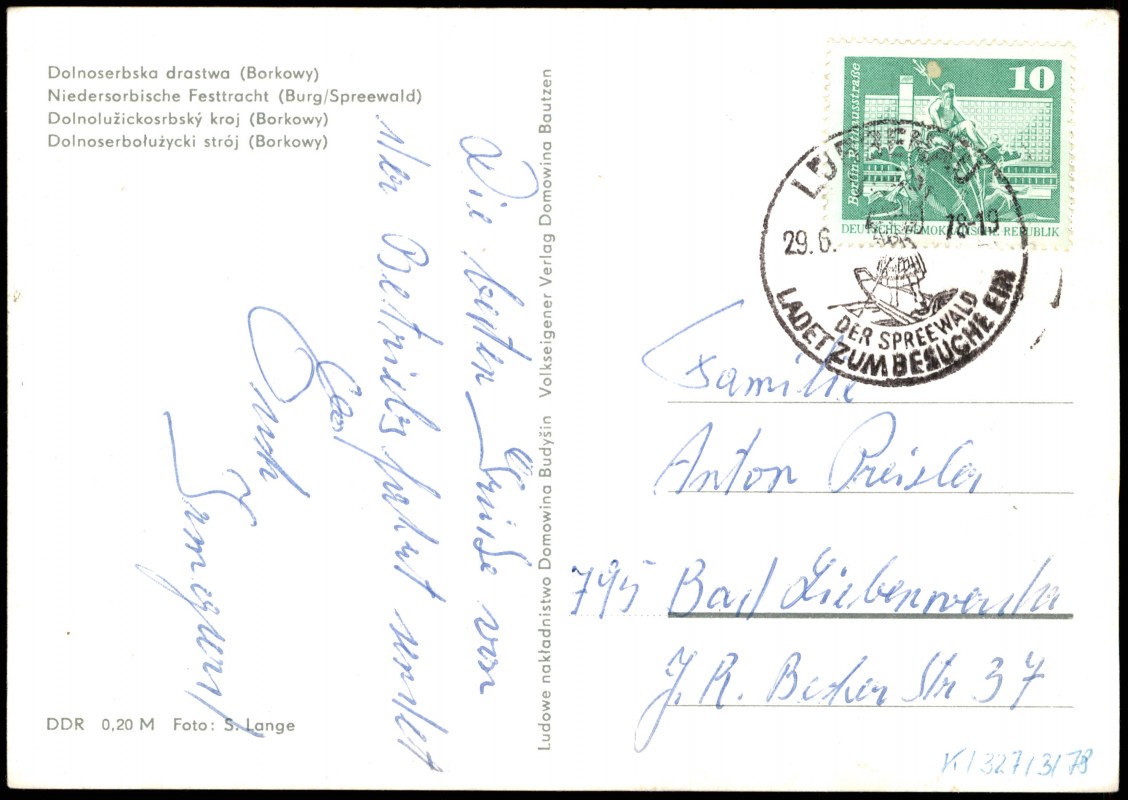 Dolnoserbska drastwa (Borkowy)
Niedersorbische Festtracht (Burg/Spreewald)
Dolnolužickosrbský kroj (Borkowy)
Dolnoserbołużycki strój (Borkowy)
Die besten Grüße von
der Betriebsfahrt sendet
Euch
Irmgard
DDR 0,20 M Foto: S. Lange
Ludowe nakładnistwo Domowina Budyšin Volkseigener Verlag Domowina Bautzen
10
Berlin-Rathausstraße
DEUTSCHE DEMOKRATISCHE REPUBLIK
29.6.
18-19
DER SPREEWALD
LADET ZUM BESUCHE EIN
Familie
Anton Preisler
795 Bad Liebenwerda
J. R. Becher Str 37
K/327/3/78